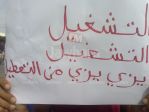 التشغيل
التشغيل
يزي يزي من التعطيل